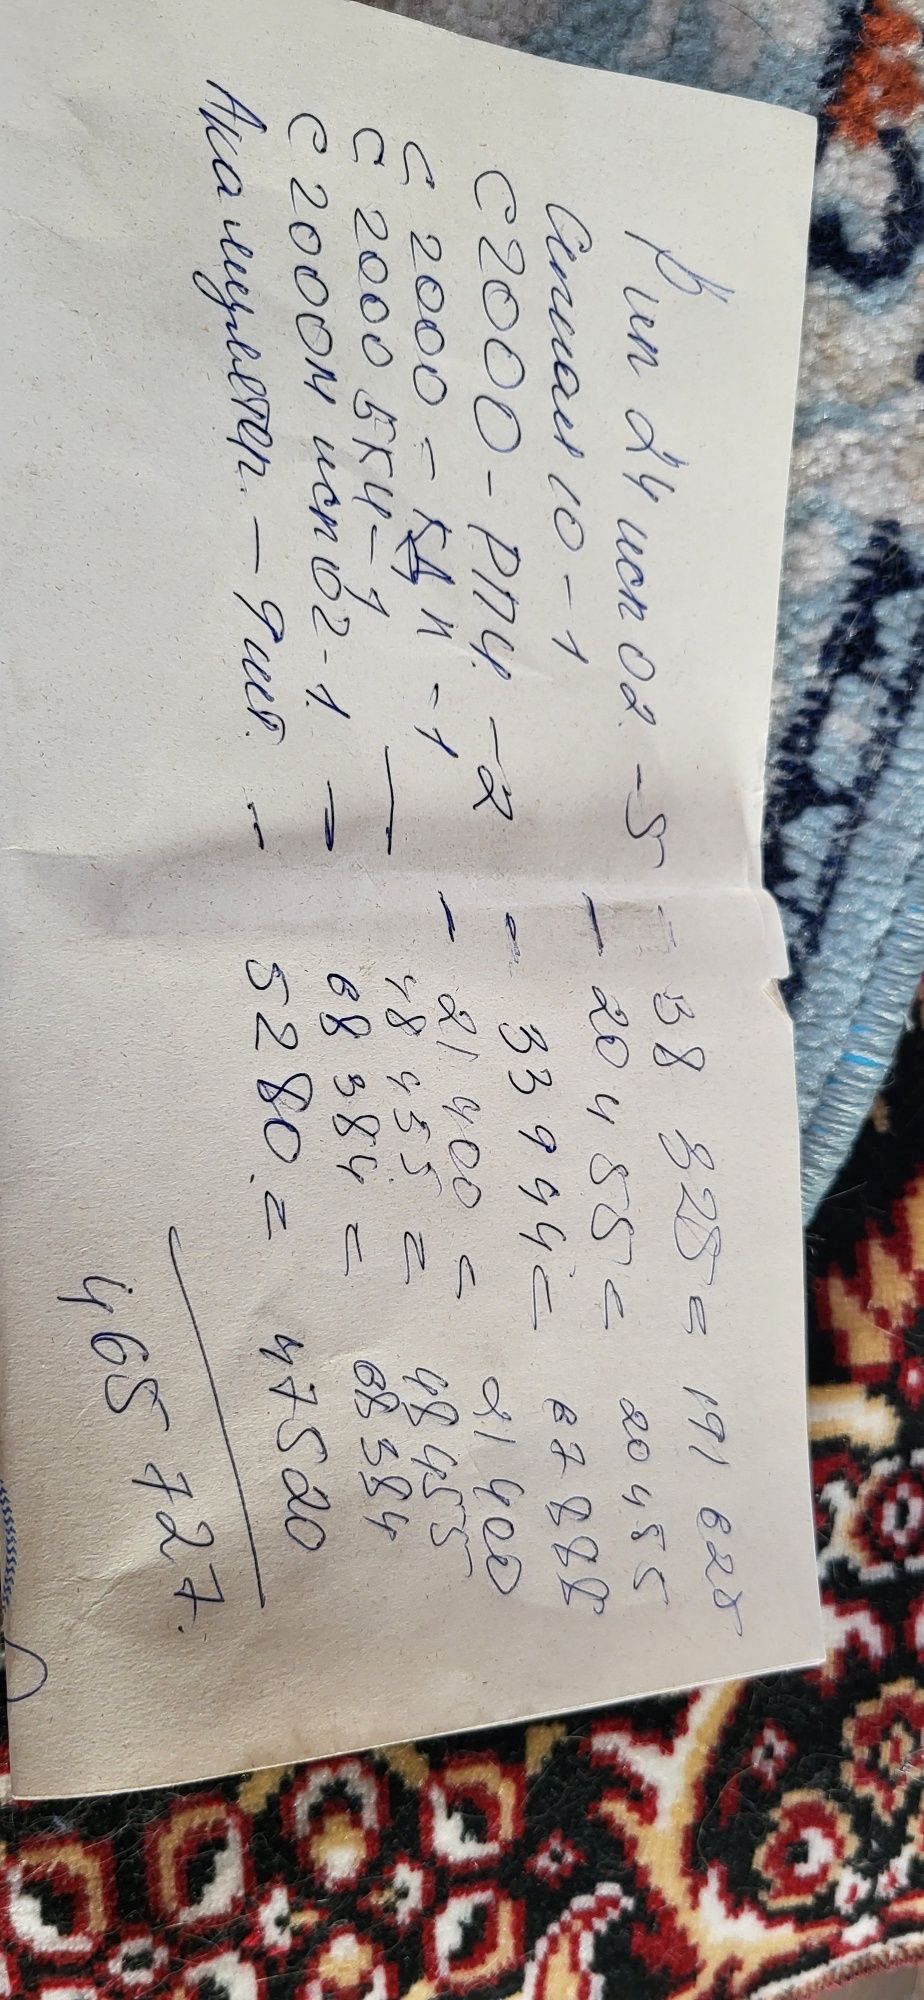 Рип 24 исп 02 - 5 - 38 325 = 191 625
Сигнал 10 - 1 - 20 455 = 20 455
С2000 - РПИ - 2 - 33 944 = 67 888
С 2000 = КДЛ - 1 - 21 400 = 21 400
С 2000 БКИ - 1 — 48 455 = 48 455
С 2000М исп 02 - 1 — 68 384 = 68 384
Аккамулятор. — 9 шт. - 5280. = 47520
465 727.